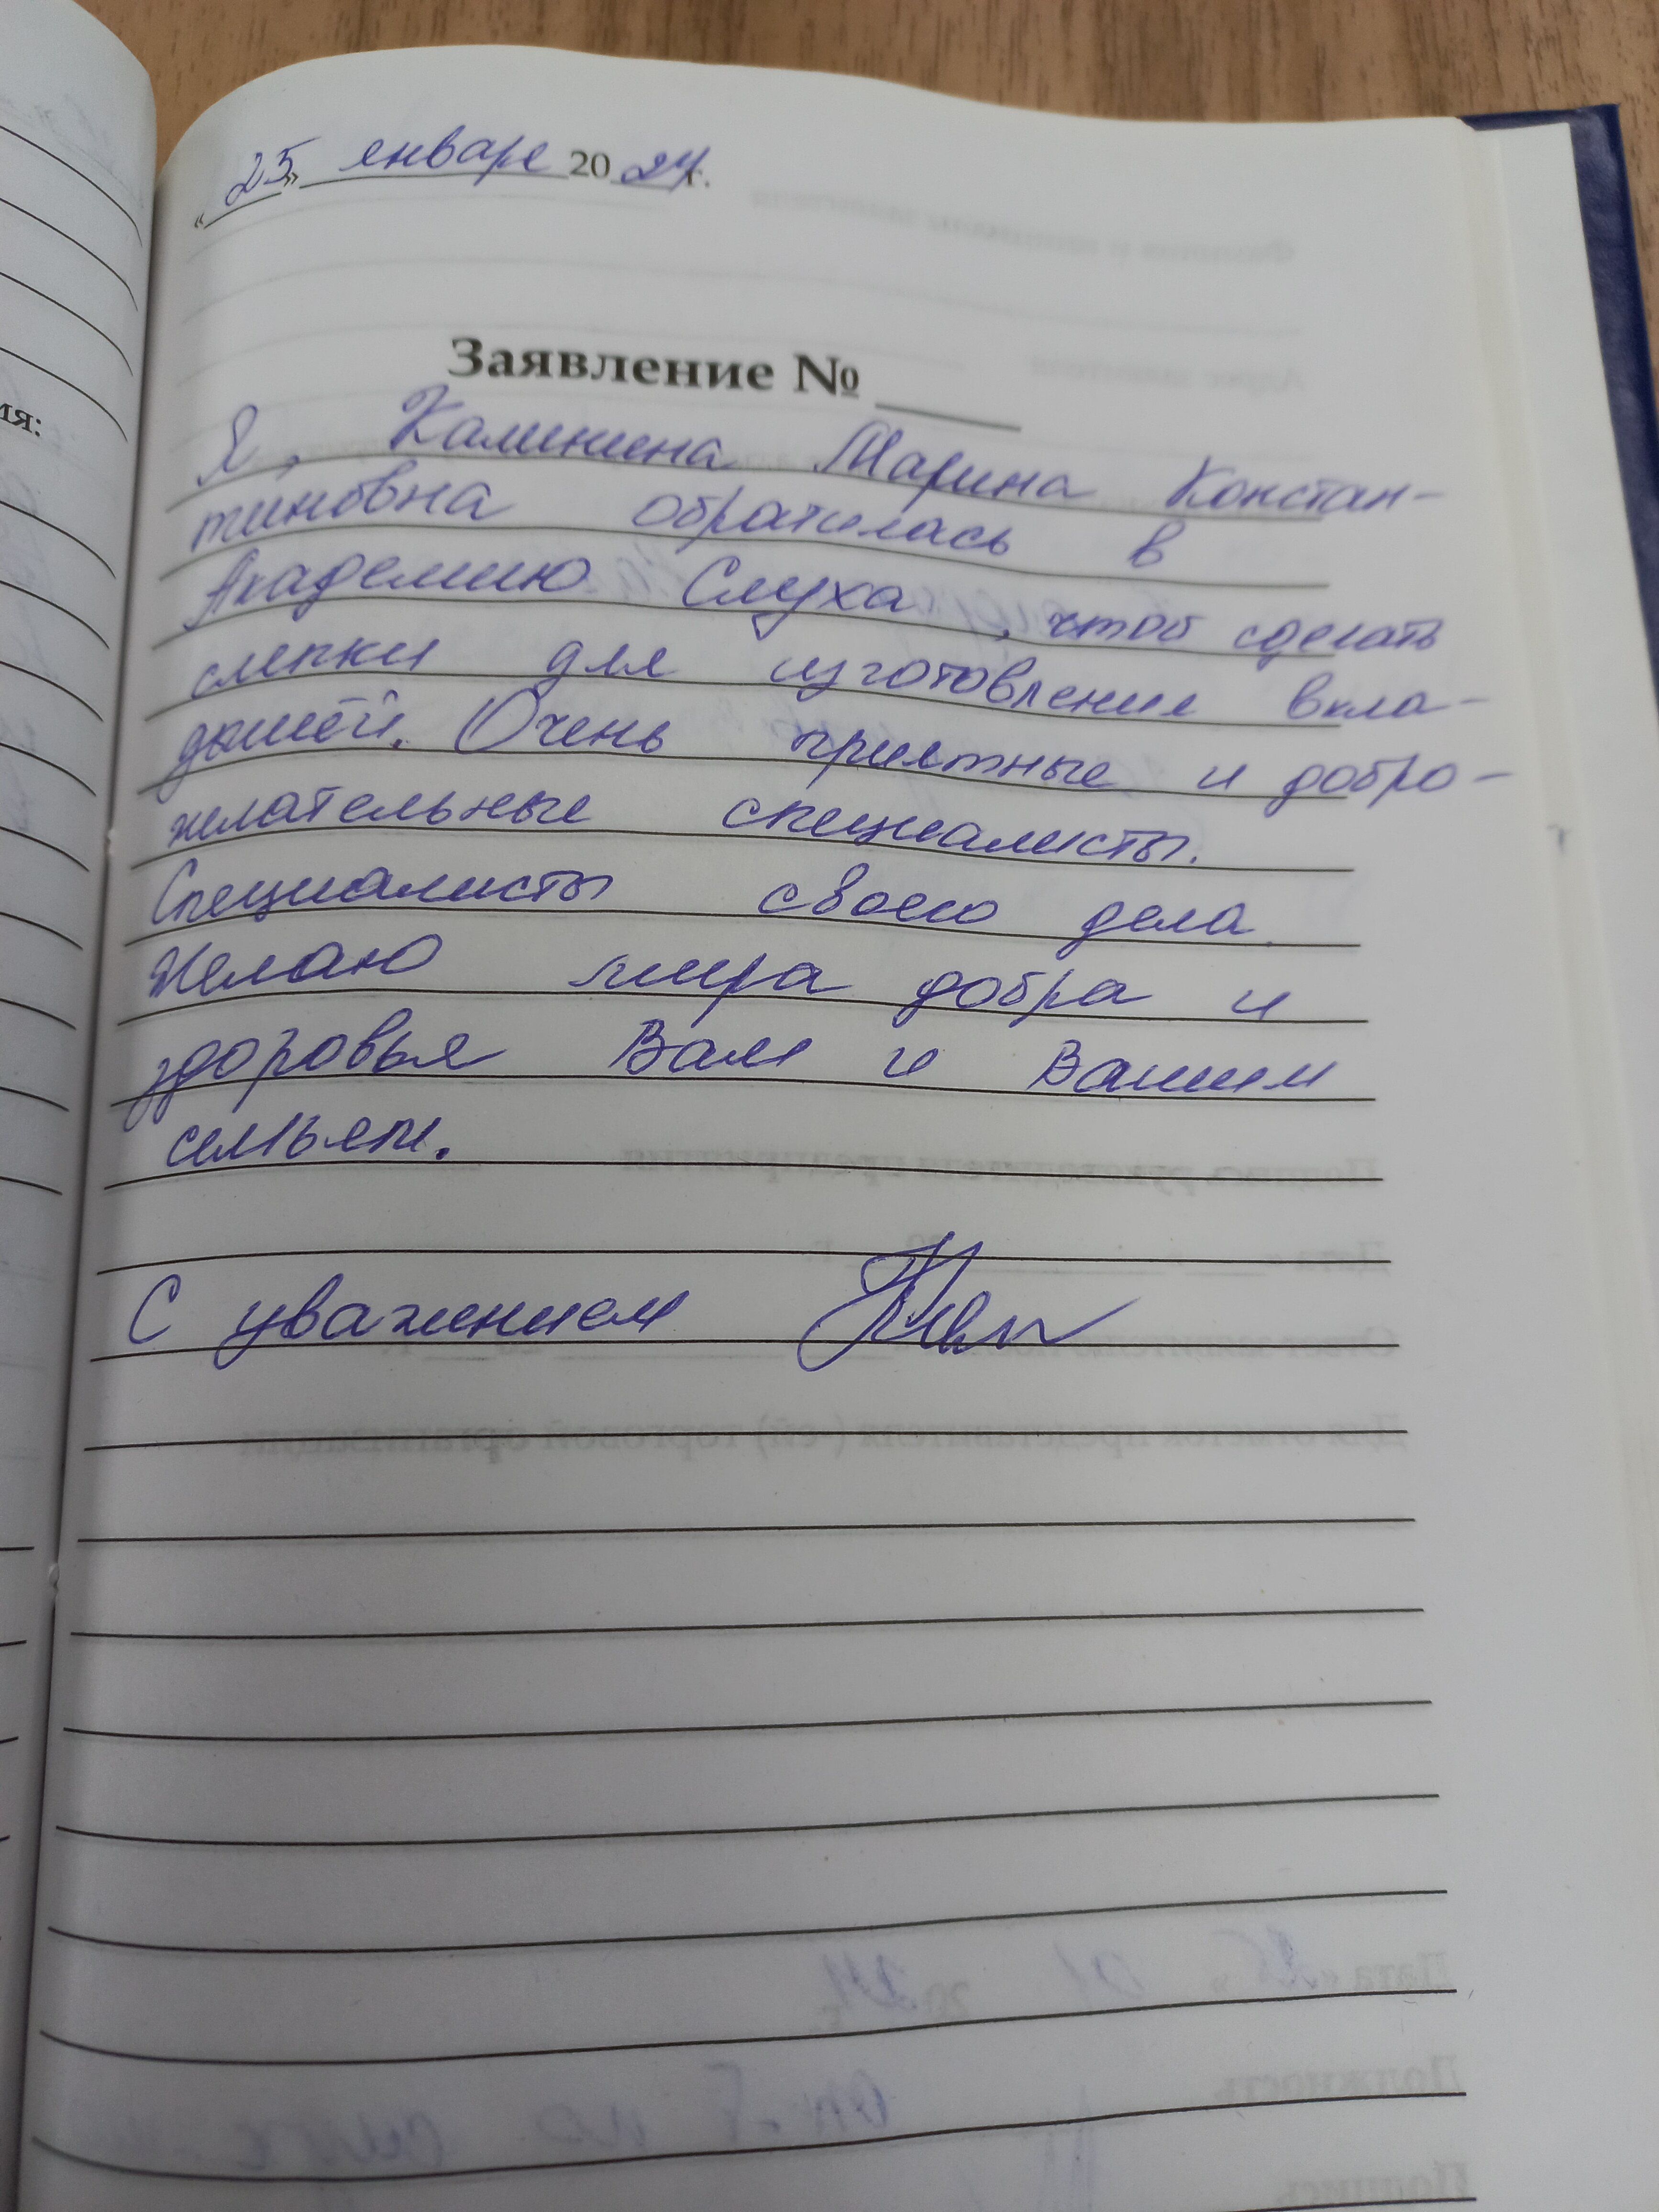 « 25 » января 2024 г.
Заявление №
Я, Калинина Марина Констан-
тиновна обратилась в
Академию Слуха, чтоб сделать
слепки для изготовления вкла-
дышей. Очень приятные и добро-
желательные специалисты.
Специалисты своего дела
Желаю мира добра и
здоровья Вам и Вашим
семьям.
С уважением